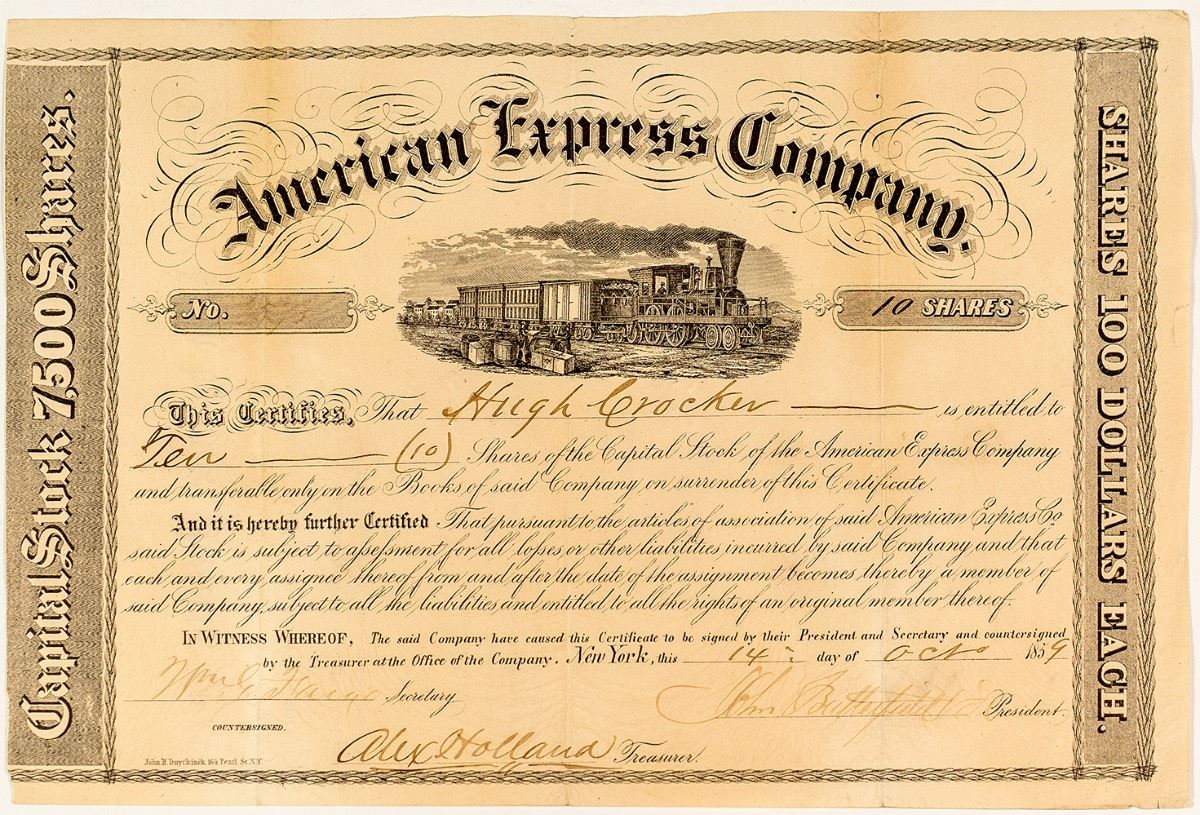 American Express Company.
Capital Stock 7,500 Shares.
SHARES 100 DOLLARS EACH.
No.
10 SHARES
This Certifies, That Hugh Crocker is entitled to
Ten (10) Shares of the Capital Stock of the American Express Company
and transferable only on the Books of said Company on surrender of this Certificate.
And it is hereby further Certified That pursuant to the articles of association of said American Express Co
said Stock is subject to assessment for all losses or other liabilities incurred by said Company and that
each and every assignee thereof from and after the date of the assignment becomes thereby a member of
said Company, subject to all the liabilities and entitled to all the rights of an original member thereof.
IN WITNESS WHEREOF, The said Company have caused this Certificate to be signed by their President and Secretary and countersigned
by the Treasurer at the Office of the Company. NEW YORK, this 14 day of Octo 1859
Wm G Fargo Secretary
John Butterfield President.
COUNTERSIGNED.
Alex Holland Treasurer.
John B. Duyckinck 164 Pearl St. N.Y.